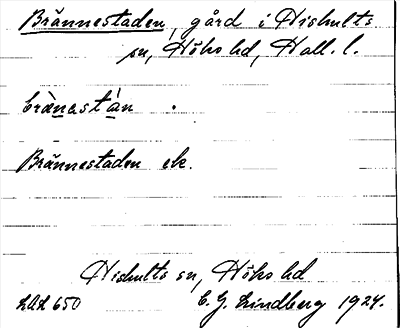 Brännestaden, gård i Hishults
sn, Höks hd, Hall. l.
brànest̀an .
Brännestaden ek.
Hishults sn, Höks hd
LAL 650 C. G. Lindberg 1924.